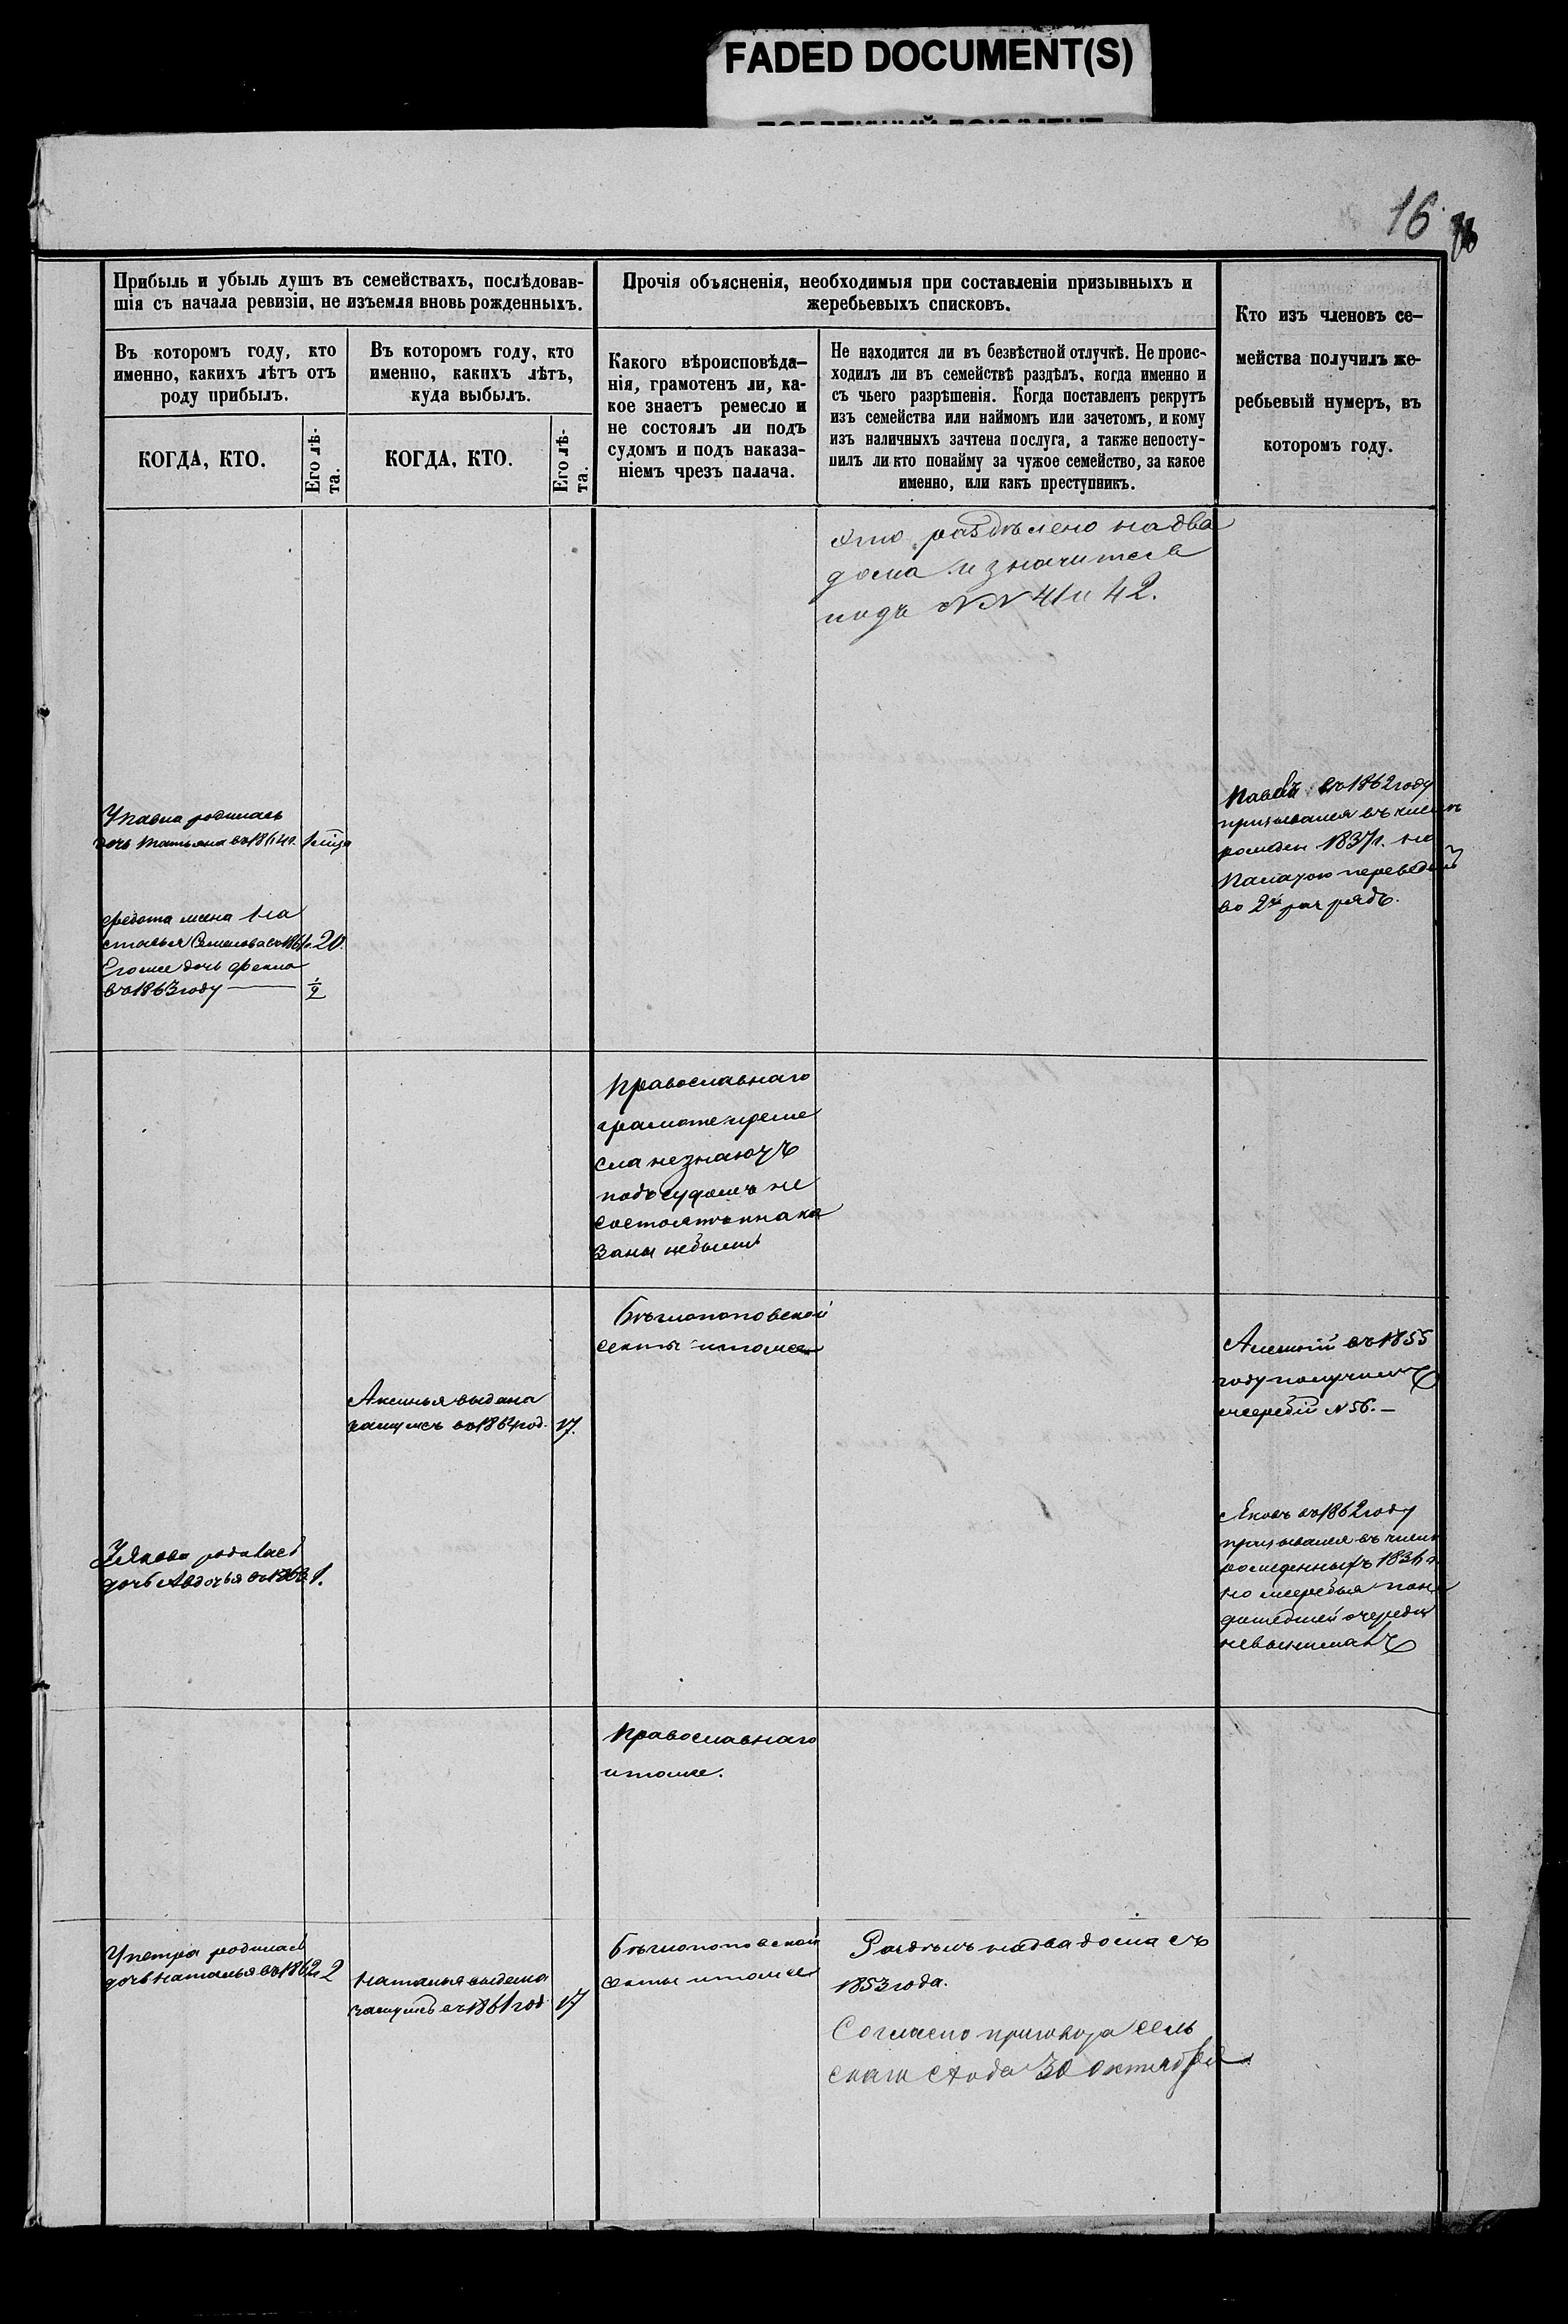 FADED DOCUMENT(S)
16
Прибыль и убыль душъ въ семействахъ, послѣдовав-
шія съ начала ревизіи, не изъемля вновь рожденныхъ.
Прочія объясненія, необходимыя при составленіи призывныхъ и
жеребьевыхъ списковъ.
Кто изъ членовъ се-
мейства получилъ же-
ребьевый нумеръ, въ
которомъ году.
Въ которомъ году, кто
именно, какихъ лѣтъ отъ
роду прибылъ.
Въ которомъ году, кто
именно, какихъ лѣтъ,
куда выбылъ.
Какого вѣроисповѣда-
нія, грамотенъ ли, ка-
кое знаетъ ремесло и
не состоялъ ли подъ
судомъ и подъ наказа-
ніемъ чрезъ палача.
Не находится ли въ безвѣстной отлучкѣ. Не проис-
ходилъ ли въ семействѣ раздѣлъ, когда именно и
съ чьего разрѣшенія. Когда поставленъ рекрутъ
изъ семейства или наймомъ или зачетомъ, и кому
изъ наличныхъ зачтена послуга, а также непосту-
пилъ ли кто понайму за чужое семейство, за какое
именно, или какъ преступникъ.
КОГДА, КТО.
Его лѣ-
та.
КОГДА, КТО.
Его лѣ-
та.
это раздѣлено на два
дома и значится
подъ NN 41 и 42.
У павла родилась
дочь татьяна въ 1864 г.
Павелъ въ 1862 году
призывался въ числѣ
рожден 1837 г. но
Палатою переведенъ
во 2й разрядъ.
федота жена
Семенова въ 1861 г. 20.
Его же дочь фекла
въ 1863 году 1/2
Православнаго
грамоте и реме
сла незнаютъ
подъ судомъ не
состоятъ и нака
заны небыли
Бѣглопоповской
секты и тоже
Алексѣй въ 1855
году получилъ
жеребій N 56.
Аксинья выдана
замужъ въ 1864 год. 17.
Яковъ въ 1862 году
призывался въ числѣ
рожденныхъ 1836 г.
но жеребья по не
дошедшей очереди
невынималъ
У Якова родилась
дочь Авдотья въ 1863 1.
Православнаго
и тоже.
У петра родилась
дочь наталья въ 1862 г 2
наталья выдана
замужъ въ 1861 год 17
Бѣглопоповской
секты и тоже
Раздѣлъ на два дома съ
1853 года.
Согласно приговора сель
скаго схода 30 октября